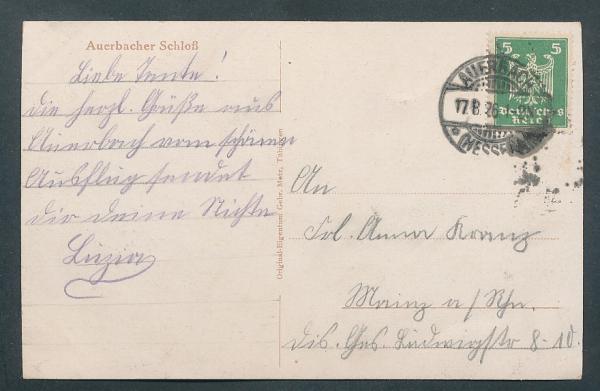 Auerbacher Schloß
Liebe Tante!
die herzl. Grüße aus
Auerbach vom schönen
Ausflug sendet
dir deine Nichte
Luzia
Original-Eigentum Gebr. Metz, Tübingen
5 5
Deutsches
Reich
AUERBACH
17.8.26
(HESSEN)
An
Frl. Anna Kranz
Mainz a/Rhn.
Dis. Ges. Ludwigstr 8-10.